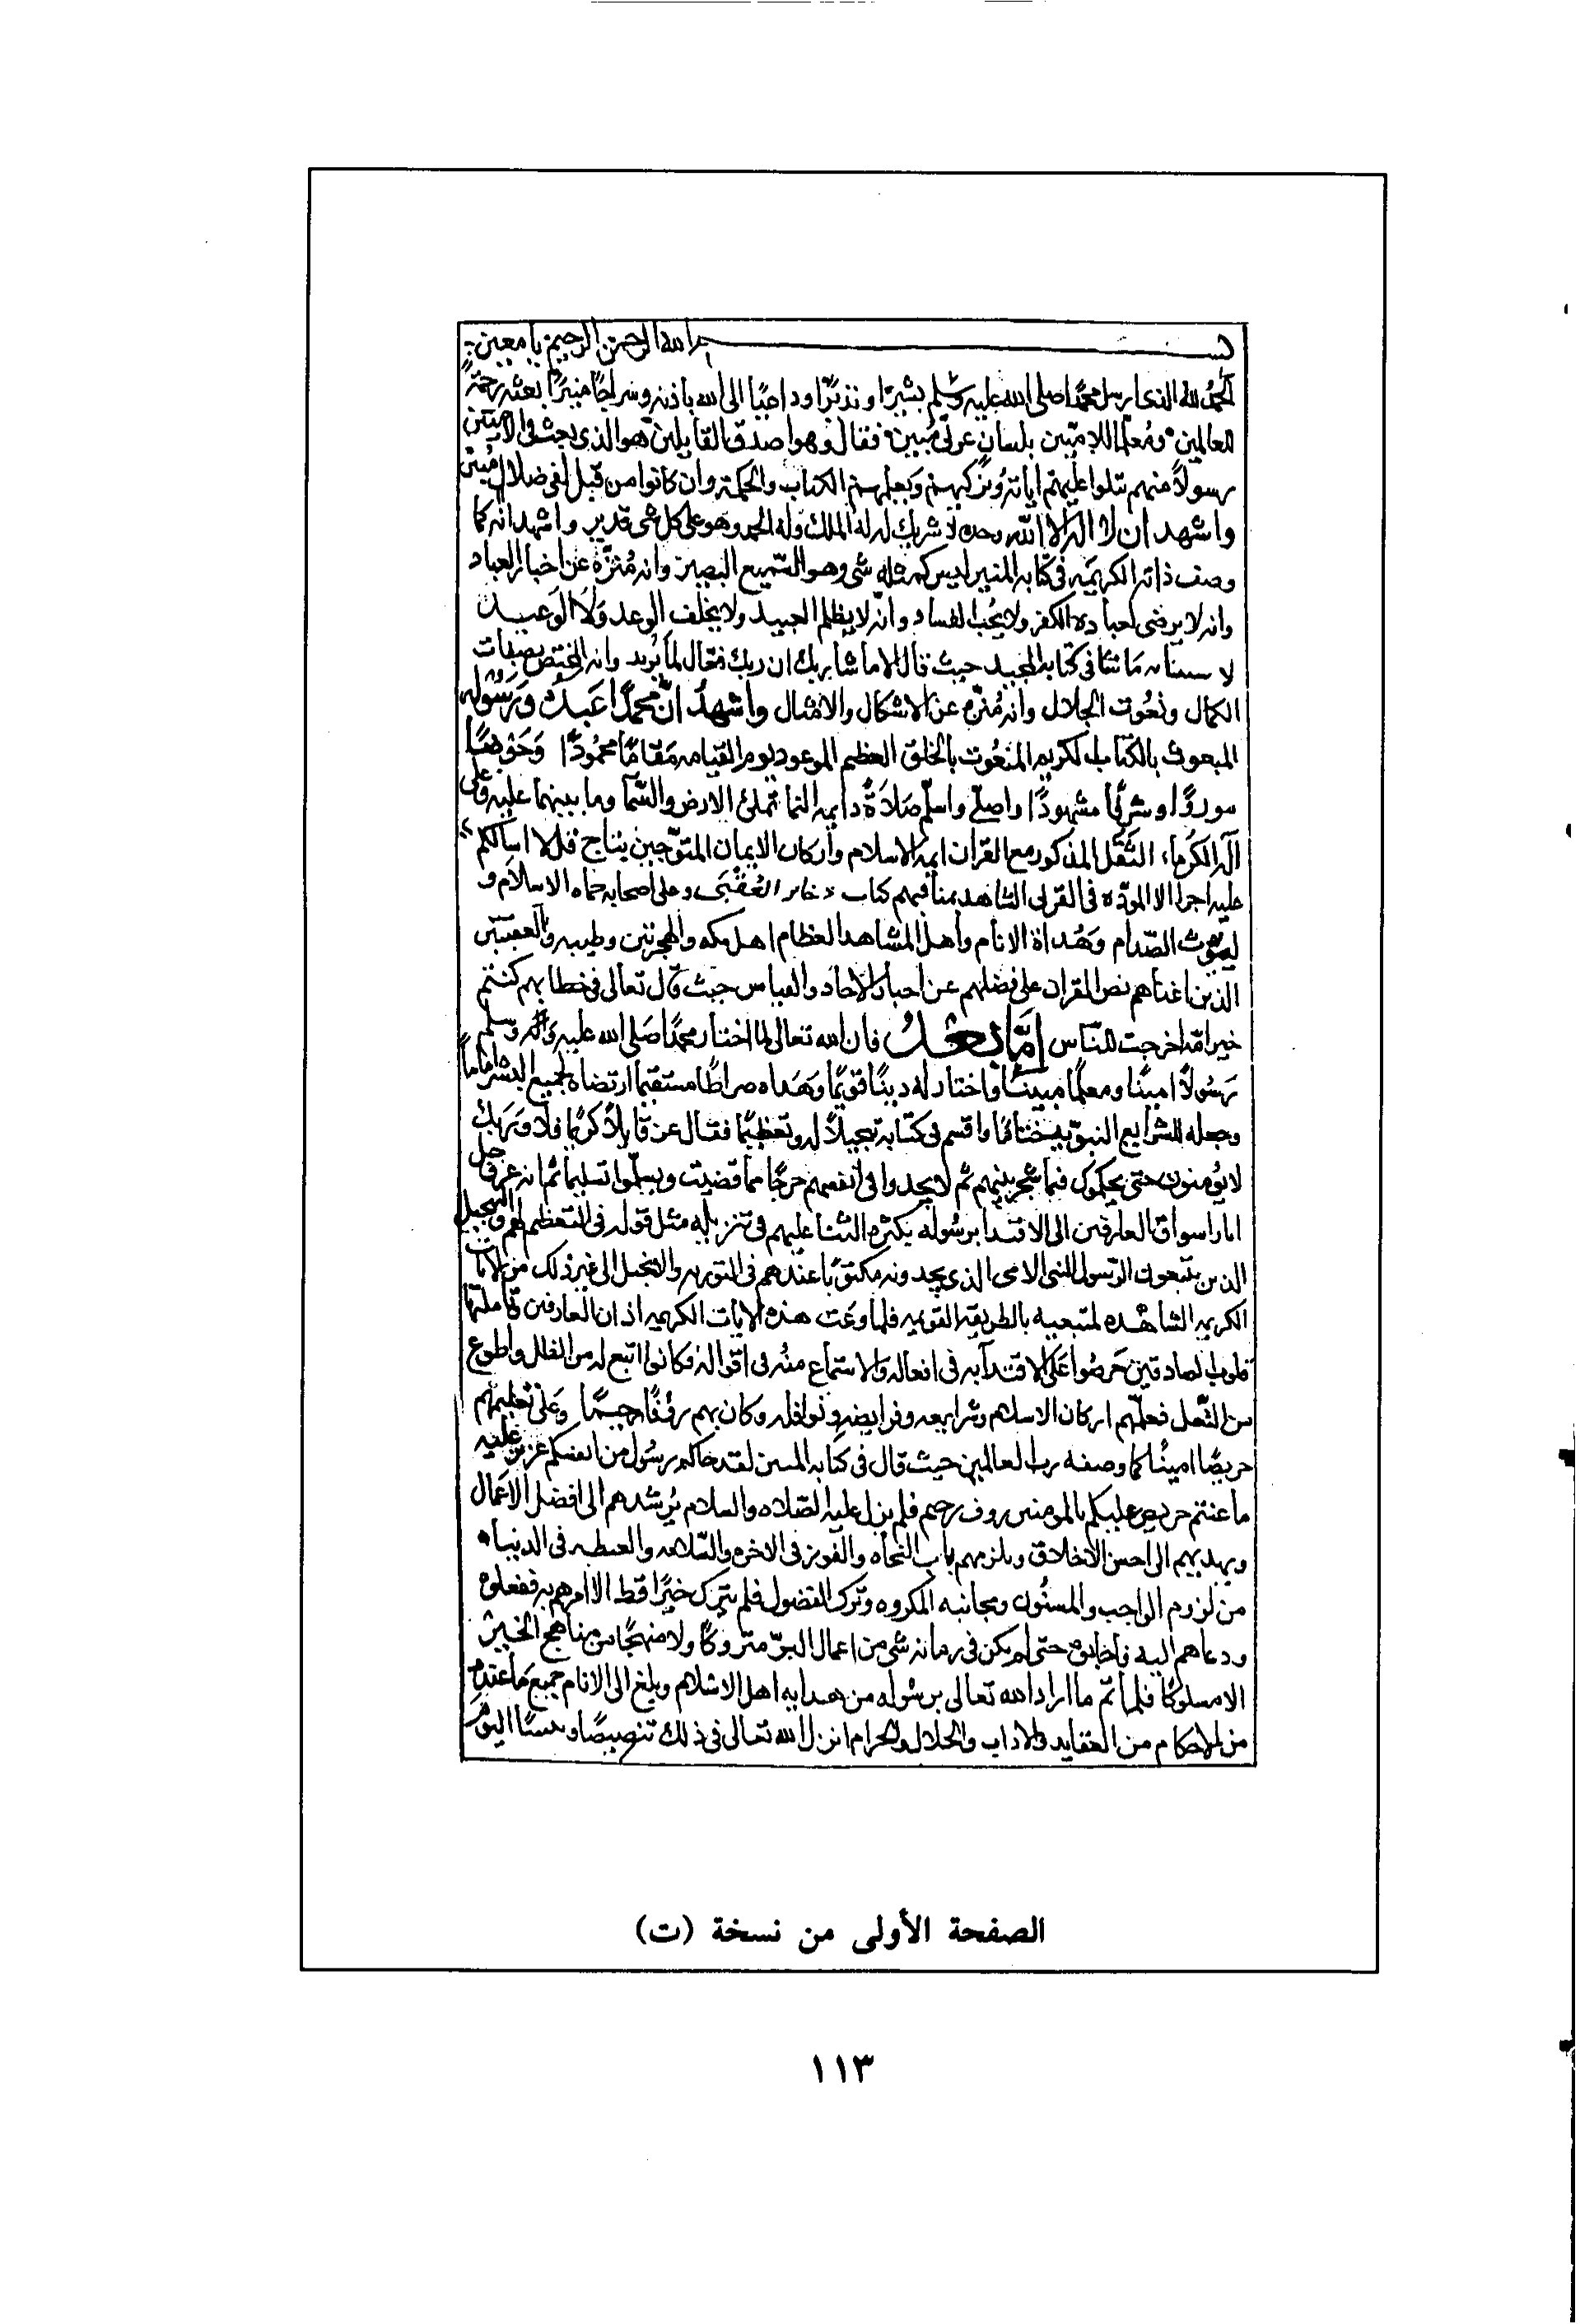 بسم الله الرحمن الرحيم يا معين
الحمد لله الذى ارسل محمدا صلى الله عليه وسلم بشيرًا ونذيرًا وداعيًا الى الله باذنه وسراجًا منيرًا بعثه رحمةً
للعالمين ومُعلّمًا للاميّين بلسانٍ عربيّ مُبين فقال وهو اصدق القايلين هو الذى بعث فى الاميّين
رسولاً منهم يتلوا عليهم اياته ويُزكيهم ويعلمهم الكتاب والحكمة وان كانوا من قبل لفى ضلال مُبين
واشهد ان لا اله الا الله وحده لا شريك له له الملك وله الحمد وهو على كل شى قدير واشهد انه كما
وصف ذاته الكريمه فى كتابه المنير ليس كمثله شى وهو السّميع البصير وانه مُنزّه عن اجبار العباد
وانه لا يرضى لعباده الكفر ولا يُحب الفساد وانّه لا يظلم العبيد ولا يخلف الوعد وَلاَ الوَعيد
لا فى كتابه المجيد حيث قال الا ما شا ربك ان ربك فعّال لما يُريد وانه المختص بصفات
الكمال ونعُوت الجلال وانه مُنزّه عن الاشكال والامثال واشهدُ انّ محمدًا عَبدهُ وَرَسُوله
المبعوث بالكتاب الكريم المنعُوت بالخلق العظيم الموعود يوم القيامه مَقامًا محمُودًا وَحَوضًا
مورودًا وشرفًا مشهودًا واصلّى واسلّم صَلاَةً دايمه النما تملئ الارض والسّما وما بينهما عليه وعلى
آله الكُرما، الثّقل المذكور مع القران ايمه الاسلام واركان الايمان المتوّجين بتاج قل لا اسالكم
عليه اجرا الا المودّه فى القربى الشاهد بمناقبهم كتاب ذخاير العُقبَى وعلى اصحابه حماه الاسلام و
ليوث الصّدام وَهُداة الانام وأهل المشاهد العظام اهل مكه والهجرتين وطيبه والعقبتين
الذين اغناهم نص القران على فضلهم عن اخبار الاحاد والقياس حيث قال تعالى فى خطابهم كنتم
خير امّه اخرجت للنّاس امّا بَعدُ فان الله تعالى لما اختار محمدًا صَلى الله عليه وآله وسلم
رَسُولاً امينًا ومعلمًا مبينًا واختار له دينًا قويمًا وهَداه صراطًا مستقيمًا ارتضاه لجميع البشر امامًا
وجعله للشرايع النبوّيه ختامًا واقسم فى كتابه تبجيلاً له وتعظيمًا فقال عز قايلاً كريمًا فلا وَرَبك
لا يُؤمنون حتى يحكموك فيما شجر بينهم ثم لا يجدوا فى انفسهم حرجًا مما قضيت ويسلّموا تسليما ثم انه عز وجل
اثار اشواق العارفين الى الاقتدا برسُوله بكثره الثنا عليهم فى تنزيله مثل قوله فى التعظيم لهم والتبجيل
الذين يتبعون الرّسول النبى الامى الذى يجدونه مكتوبًا عندهم فى التوريه والانجيل الى غير ذلك من الايات
الكريمه الشاهده لمتبعيه بالطريقه القويمه فلما وعَت هذه الايات الكريمه اذان العارفين تاملتها
قلوب الصادقين حَرصُوا عَلى الاقتدآ به فى افعاله والاستماع منهُ فى اقواله فكانوا اتبع له من الظلل واطوع
من النّعل فعلّمهم اركان الاسلام وشرايعه وفرايضه ونوافله وكان بهم رؤفًا رحيمًا وَعَلى تعليمهم
حريصًا امينًا كما وصفه رب العالمين حيث قال فى كتابه المبين لقد جاكم رسُول من انفسكم عزيز عليه
ما عنتم حريص عليكم بالمومنين روف رحيم فلم يزل عليه الصّلاه والسلام يُرشدهم الى افضل الاعمال
ويهديهم الى احسن الاخلاق ويلزمهم باب النجاه والفوز فى الاخره والسّلامه والغبطه فى الدنيا
من لزوم الواجب والمسنُون ومجانبه المكروه وترك الفضول فلم يترك خيرًا قط الا امرهم به ففعلوه
ودعاهم اليه فاجابوه حتى لم يكن فى زمانه شى من اعمال البرّ متروكًا ولا منهجًا من مناهج الخير
الا مسلوكًا فلما تمّ ما اراد الله تعالى برسُوله من هدايه اهل الاسلام وبلغ الى الانام جميع ما عنده
من الاحكام من العقايد والاداب والحلال والحرام انزل الله تعالى فى ذلك تنصيصًا اليوم
الصفحة الأولى من نسخة (ت)
١١٣